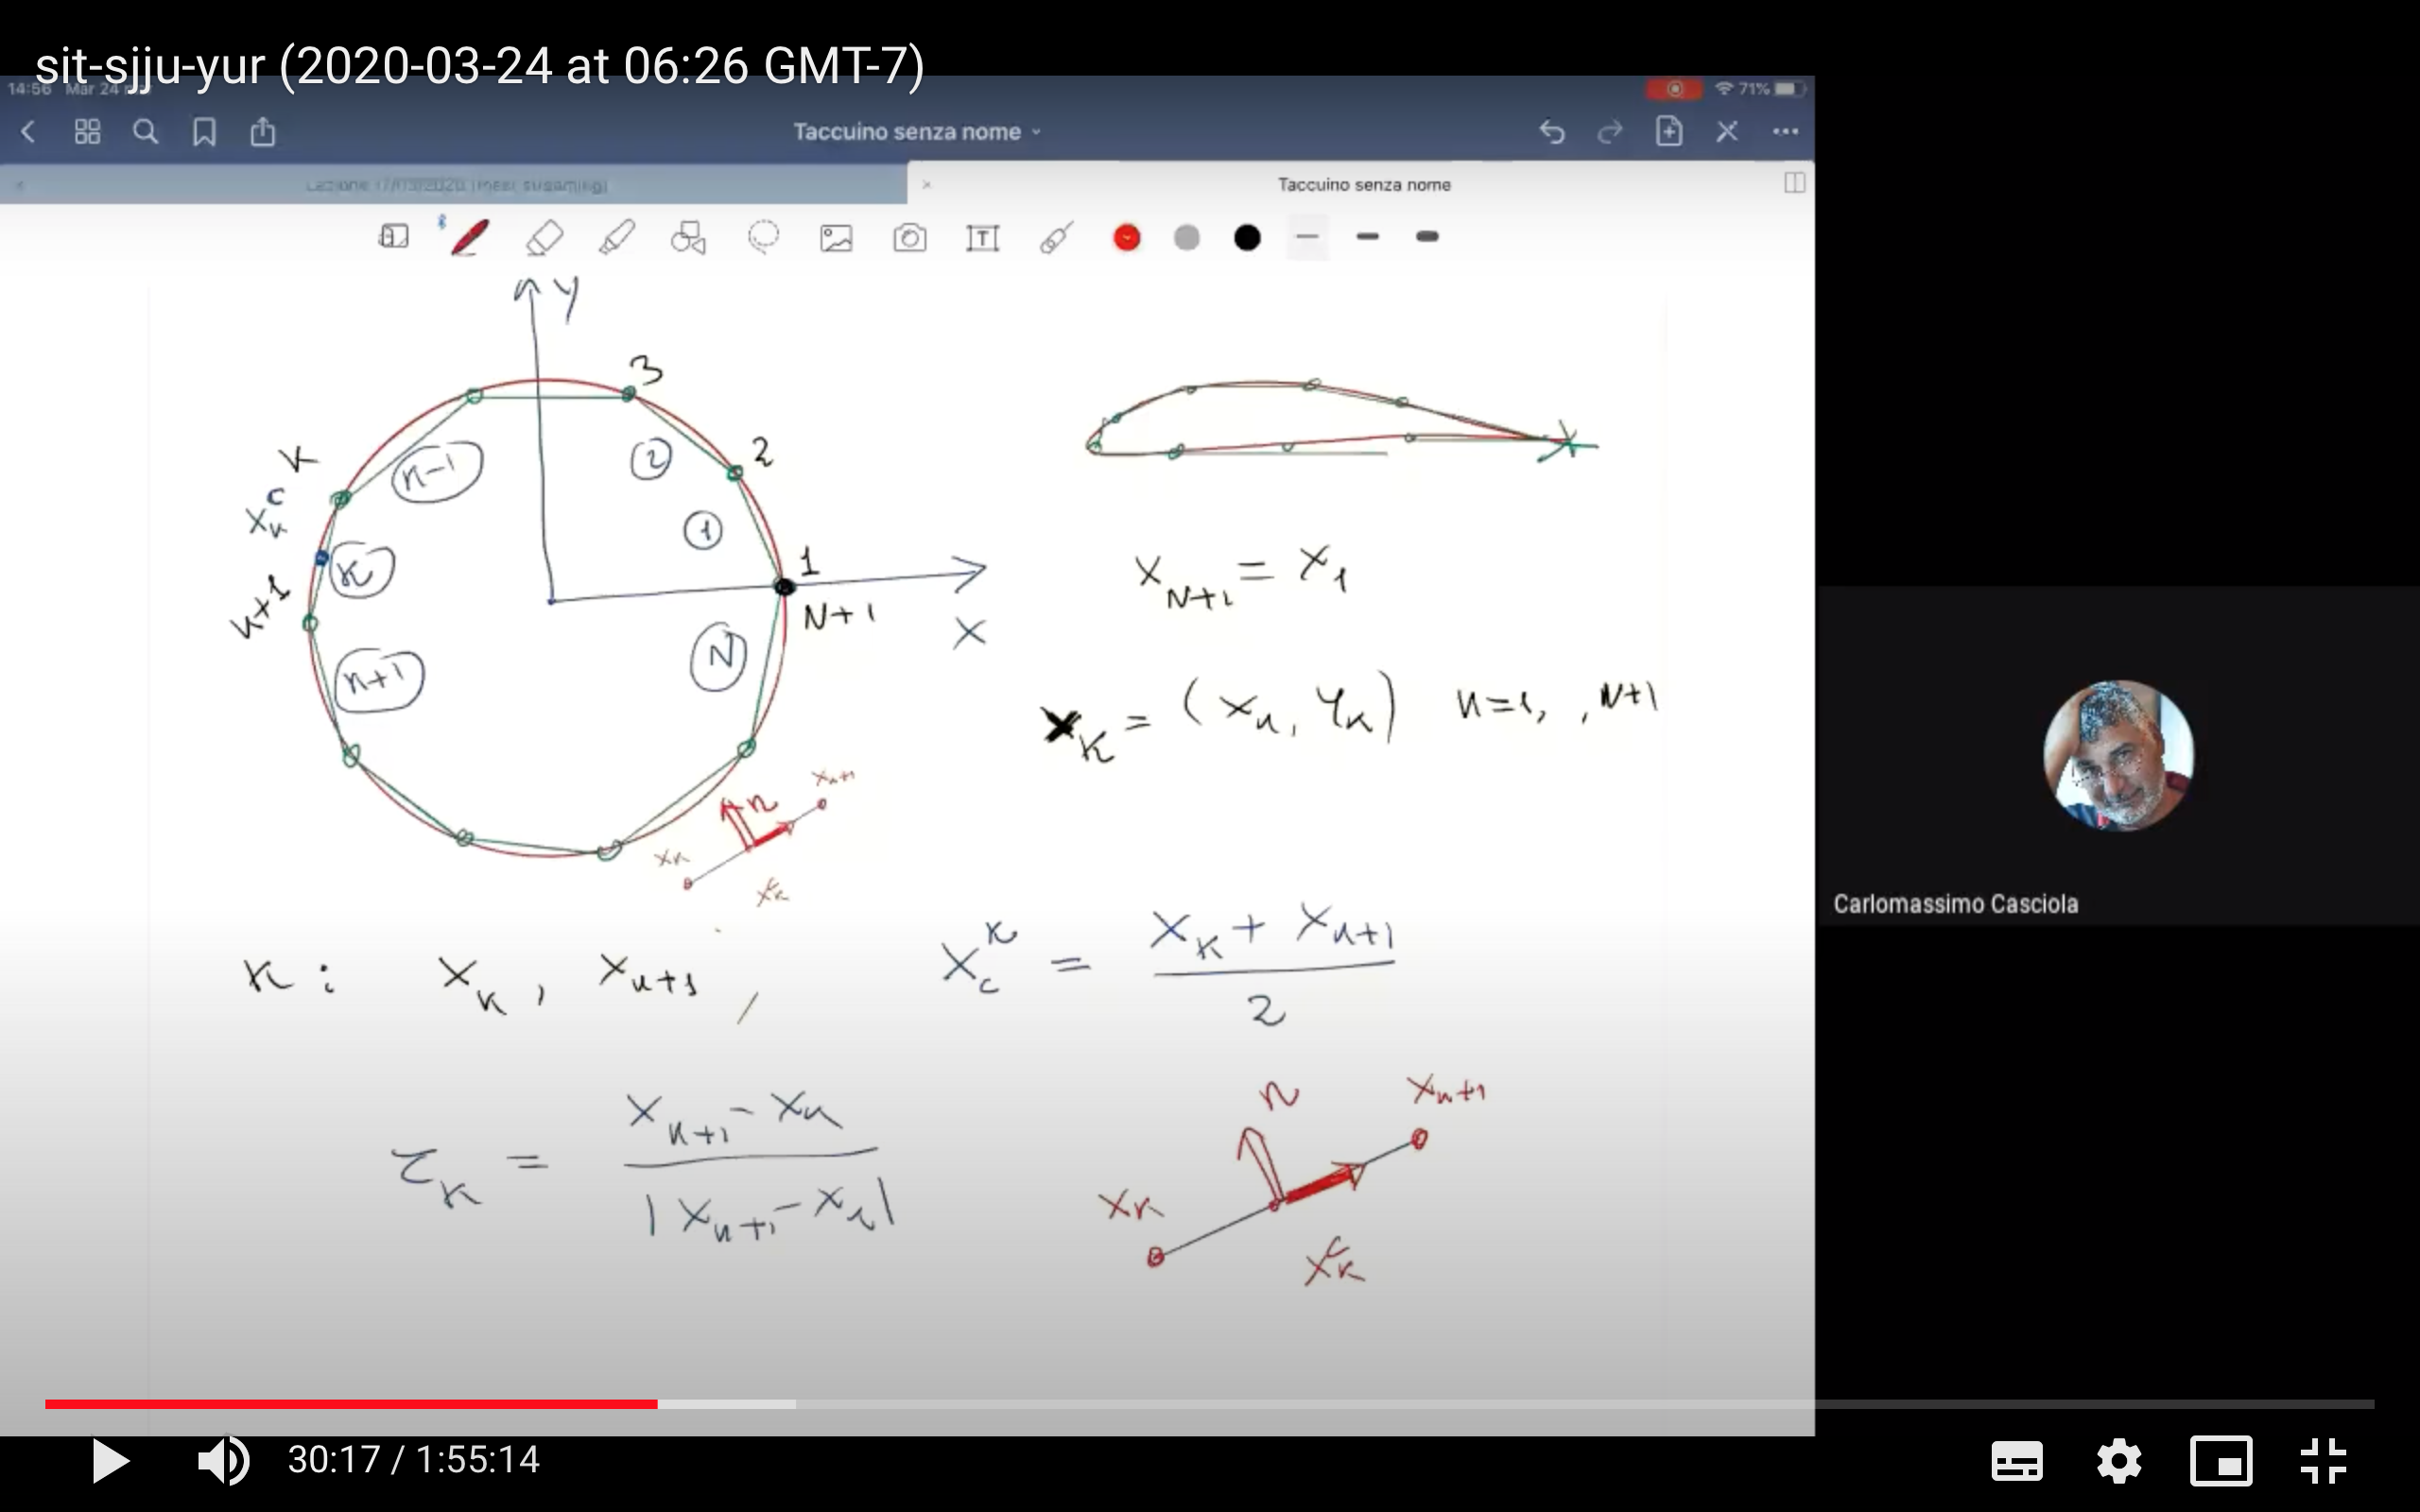 sit-sjju-yur (2020-03-24 at 06:26 GMT-7)
14:56 Mar 24
71%
Taccuino senza nome
Lezione 17/03/2020
Taccuino senza nome
T
y
3
2
K
n-1
2
x_k^c
1
K
1
x_{N+1} = x_1
k+1
N+1
x
N
n+1
x_k = (x_k, y_k) k=1, , N+1
x_{k+1}
n
x_k
x_k^c
K: x_k, x_{k+1},
x_c^k = \frac{x_k + x_{k+1}}{2}
τ_k = \frac{x_{k+1} - x_k}{|x_{k+1} - x_k|}
n
x_{k+1}
x_k
x_k^c
Carlomassimo Casciola
30:17 / 1:55:14